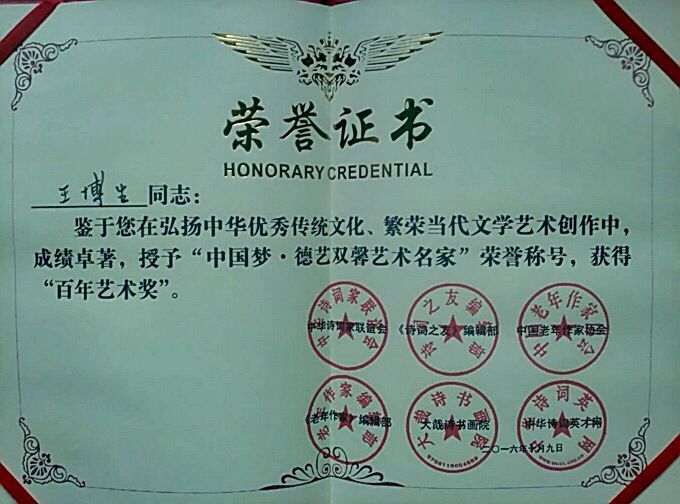 荣誉证书
HONORARY CREDENTIAL
王博生 同志：
鉴于您在弘扬中华优秀传统文化、繁荣当代文学艺术创作中，
成绩卓著，授予“中国梦·德艺双馨艺术名家”荣誉称号，获得
“百年艺术奖”。
中华诗词家联谊会 《诗词之友》编辑部 中国老年作家协会
《老年作家》编辑部 大哉诗书画院 中华诗词英才网
二〇一六年十月九日